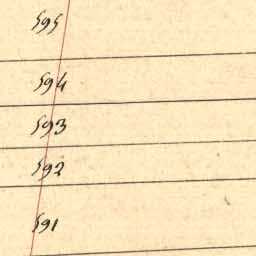 595
594
593
592
591